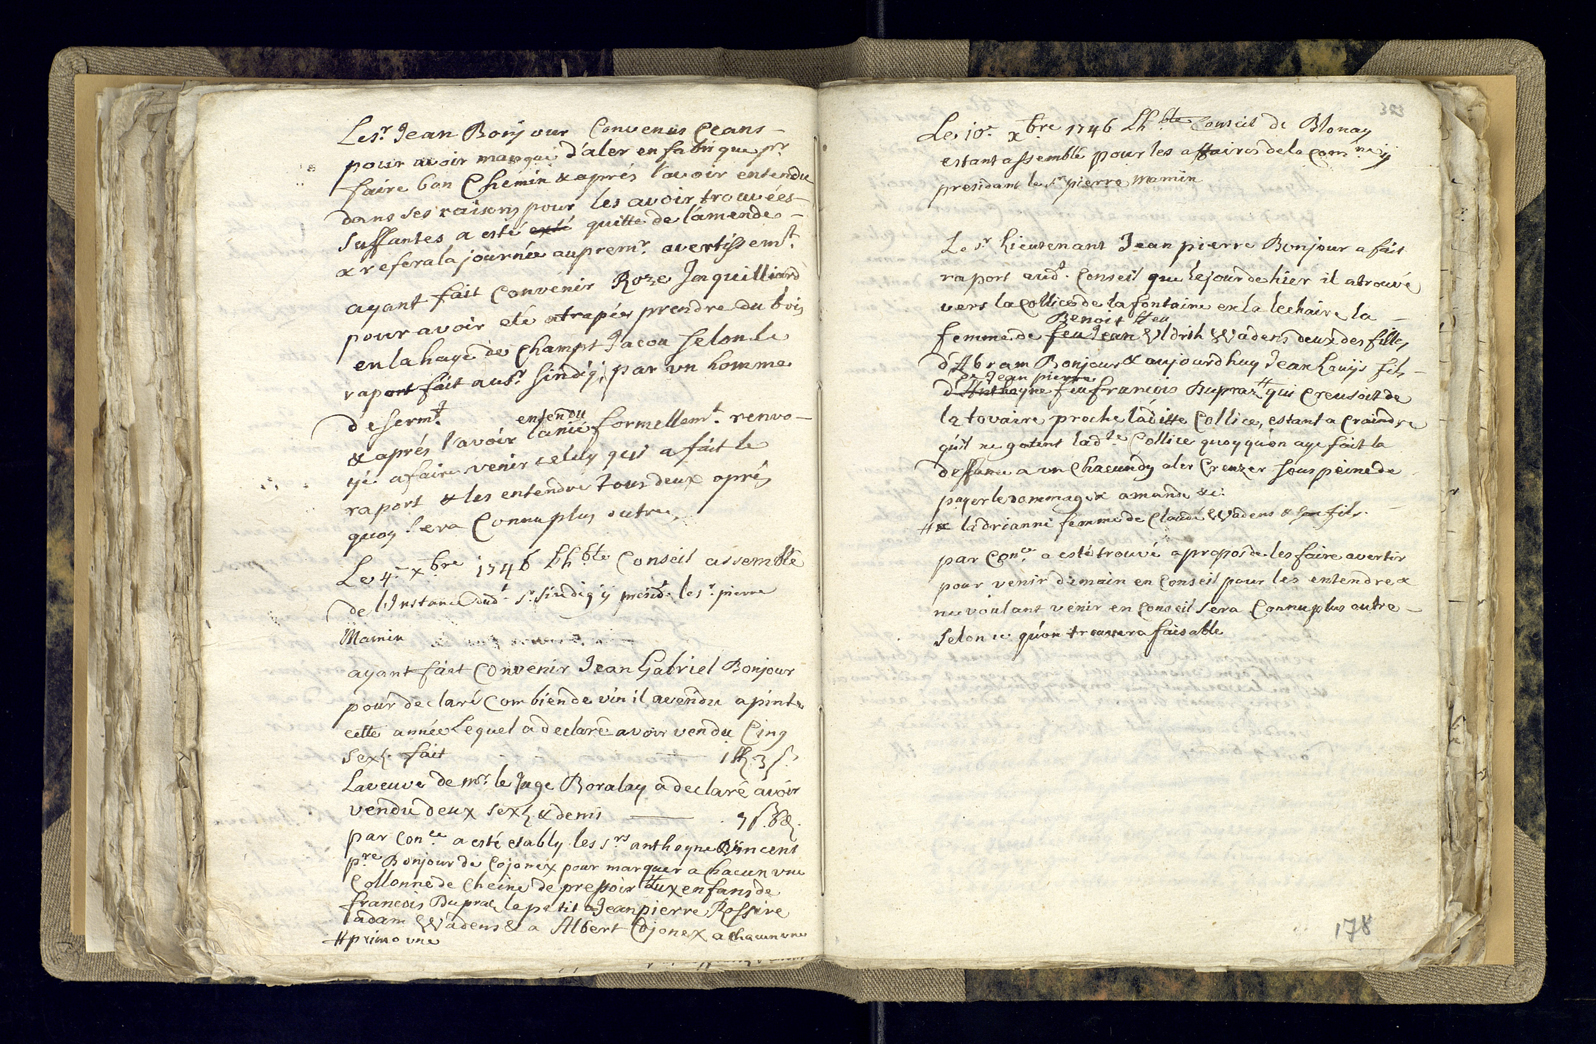 Le sr. Jean Bonjour Convenus Ceans
pour avoir manqué d'aler en fabrique pr.
faire bon Chemin & aprés l'avoir entendu
dans ses raisons pour les avoir trouvées
suffantes a esté exté quitte de l'amende
& refera la journée au premr. avertissemt.
ayant fait Convenir Roze Jaquilliard
pour avoir eté atrapée prendre du bois
en la haye de Champt Jacou selon le
raport fait au sr. sindiq; par un homme
de sermt.
entendu
& aprés l'avoir la nié formellemt. renvo-
yé. a faire venir celuy qui a fait le
raport & les entendre tous deux aprés
quoy sera Connu plus outre,
Le 4e. xbre 1746 Lhble Conseil assemblé
de l'Instance dud. sr. sindiq; y presidt. le sr. pierre
Mamin
ayant fait Convenir Jean Gabriel Bonjour
pour declaré Combien de vin il a vendu a pinte
cette année Lequel a declaré avoir vendu Cinq
sex. fait
La veuve de mr. le Juge Boralay a declaré avoir
vendu deux sex. & demis
par Conce a esté etably les srs anthoyne & Vincent
pre Bonjour de Cojonex pour marquer a Chacun une
Collonne de Cheine de pressoir # aux enfans de
francois Dupraz le petit a Jean pierre Rossire
adam Wadens & a Albert Cojonex a Chacun une
# primo une
323
Le 10e. xbre 1746 Lhble Conseil de Blonay
estant assemblé pour les affaires de la Comne. y
presidant le sr pierre Mamin
Le sr. Lieutenant Jean pierre Bonjour a fait
raport aud. Conseil que le jour de hier il a trouvé
vers la Collice de la fontaine en la Lechaire la
Benoit
femme de feu Jean Uldrih Wadens deux des filles
d'Abram Bonjour & aujourdhuy Jean Louys fils
de Jean pierre
d'Anthoyne feu francois Dupraz # qui Creusoit de
la tovaire proche laditte Collice, estant a Craindre
qu'il ne gatent ladte. Collice quoy qu'on aye fait la
deffence a un Chacun d'y aler Creuzer sous peine de
payer le dommage & amande &c.
# & la drianne femme de Claude Wadens & son fils.
par Conce a esté trouvé a propos de les faire avertir
pour venir demain en Conseil pour les entendre &
ne voulant venir en Conseil sera Connu plus outre
selon ce qu'on trouvera faisable
178